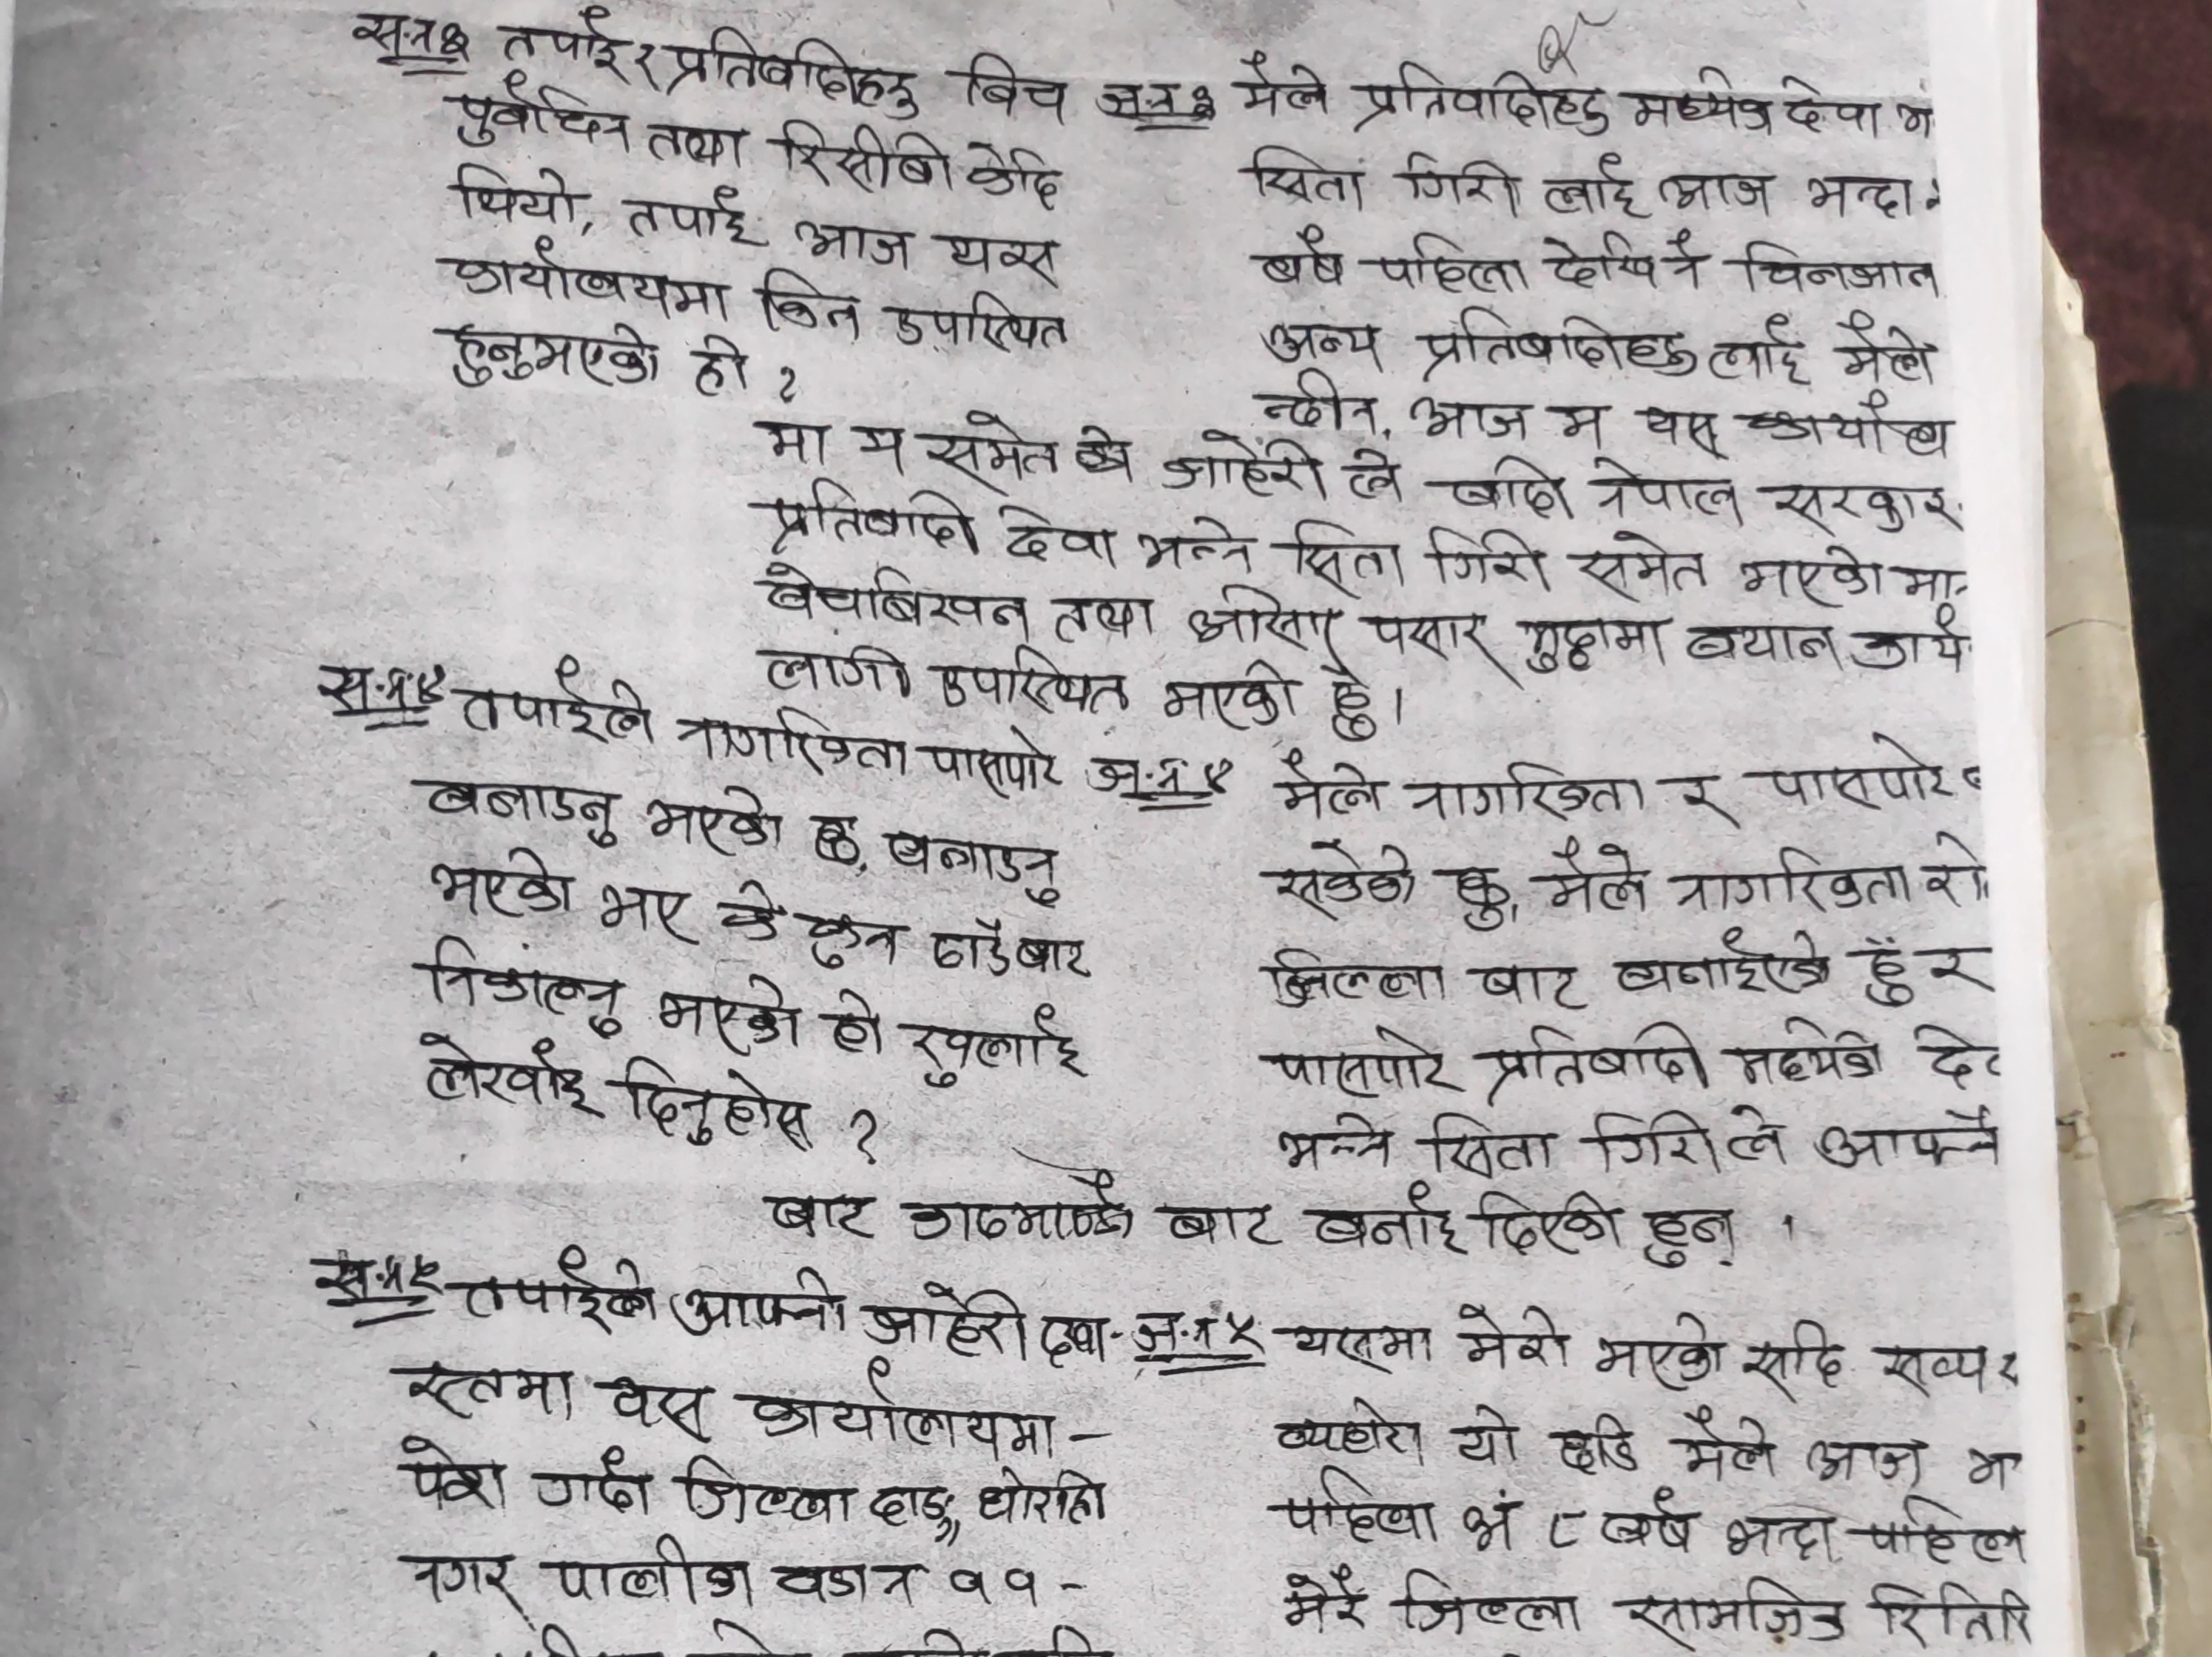 स.नं ३ तपाई र प्रतिवादीहरु बिच
पुर्वाचिन तथा रिसीबी केहि
थियो, तपाई आज यस
कार्यालयमा किन उपस्थित
हुनुभएको हो ?
ज.नं ३ मैले प्रतिवादीहरु मध्येक देवा भ
सिता गिरी लाई आज भन्दा
बर्ष पहिला देखि नै चिनजान
अन्य प्रतिबादीहरु लाई मैले
न्दीन, आज म यस कार्याल
मा म समेत को जाहेरी ले बादी नेपाल सरकार
प्रतिबादी देवा भन्ने सिता गिरी समेत भएको मा
बेचबिखन तथा ओसार पसार मुद्दामा बयान कार्य
लागी उपस्थित भएको हुँ।
स.नं ४ तपाईले नागरिकता पासपोर्ट
बनाउनु भएको छ, बनाउनु
भएको भए के कुन ठाउँबाट
निकाल्नु भएको हो खुलाई
लेखाई दिनुहोस ?
ज.नं ४ मैले नागरिकता र पासपोर्ट
सकेको छु, मैले नागरिकता रो
जिल्ला बाट बनाईएको हुँ र
पासपोर्ट प्रतिबादी मध्येकी दे
भन्ने सिता गिरीले आफ्नै
बाट काठमाण्डौ बाट बनाई दिएकी हुन् ।
स.नं ५ तपाईले आफ्नो जाहेरी दखा-
स्तमा यस कार्यालयमा -
पेश गर्दा जिल्ला दाङ, घोराही
नगर पालीका वडा नं ११ -
ज.नं ५ यसमा मेरो भएको सहि सत्य
व्यहोरा यो छ कि मैले आज भ
पहिला अं ८ बर्ष भन्दा पहिल
मेरै जिल्ला सामाजिक रितिरि